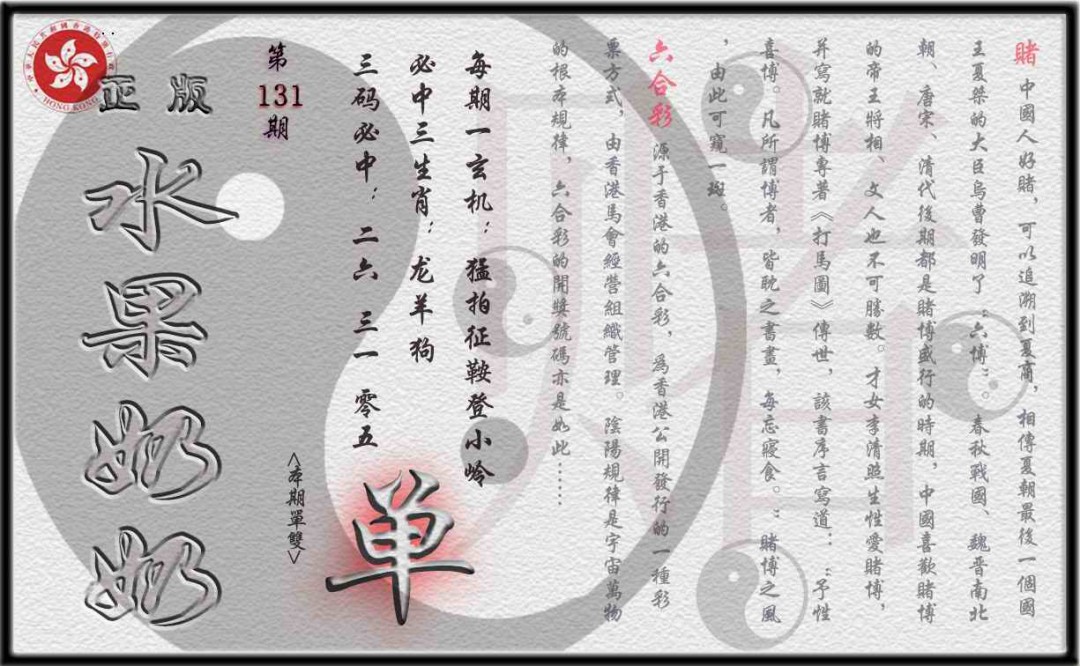 賭 中國人好賭，可以追溯到夏商，相傳夏朝最後一個國
王夏桀的大臣烏曹發明了“六博”。春秋戰國、魏晋南北
朝、唐宋、清代後期都是賭博盛行的時期，中國喜歡賭博
的帝王將相、文人也不可勝數。才女李清照生性愛賭博，
并寫就賭博專著《打馬圖》傳世，該書序言寫道：“予性
喜博。凡所謂博者，皆耽之書畫，每忘寢食。”賭博之風
，由此可窺一斑。
六合彩 源于香港的六合彩，爲香港公開發行的一種彩
票方式，由香港馬會經營組織管理。陰陽規律是宇宙萬物
的根本規律，六合彩的開獎號碼亦是如此……
每期一玄机：猛拍征鞍登小岭
必中三生肖：龙羊狗
三码必中：二六 三一 零五
单
<本期單雙>
第131期
正版
水果奶奶
HONG KONG